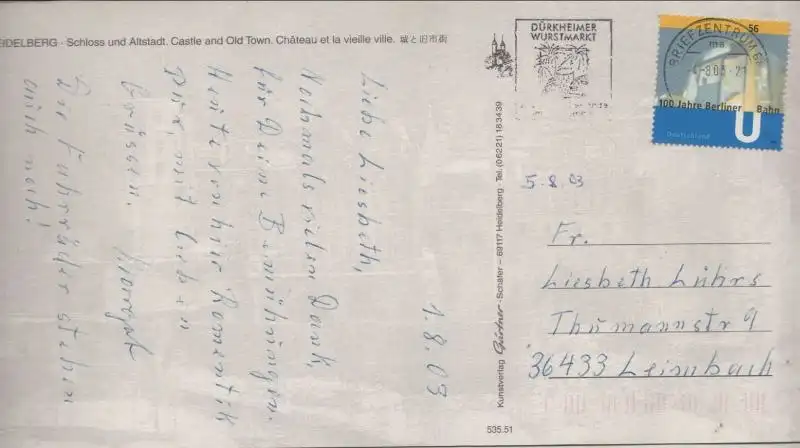 EIDELBERG · Schloss und Altstadt. Castle and Old Town. Château et la vieille ville. 城と旧市街
1.8.03
Liebe Liesbeth,
Nochmals vielen Dank,
für Deine Bemühungen.
Heute
Romantik
Pur, mit lieben
Grüssen.
Die Fuhrräder stehen
auch noch!
Kunstverlag Gärtner · Schäfer – 69117 Heidelberg · Tel. (06221) 183439
535.51
DÜRKHEIMER
WURSTMARKT
56
BRIEFZENTRUM
100 Jahre Berliner U Bahn
Deutschland
5.8.03
Fr.
Liesbeth Lührs
Thümannstr 9
36433 Leimbach